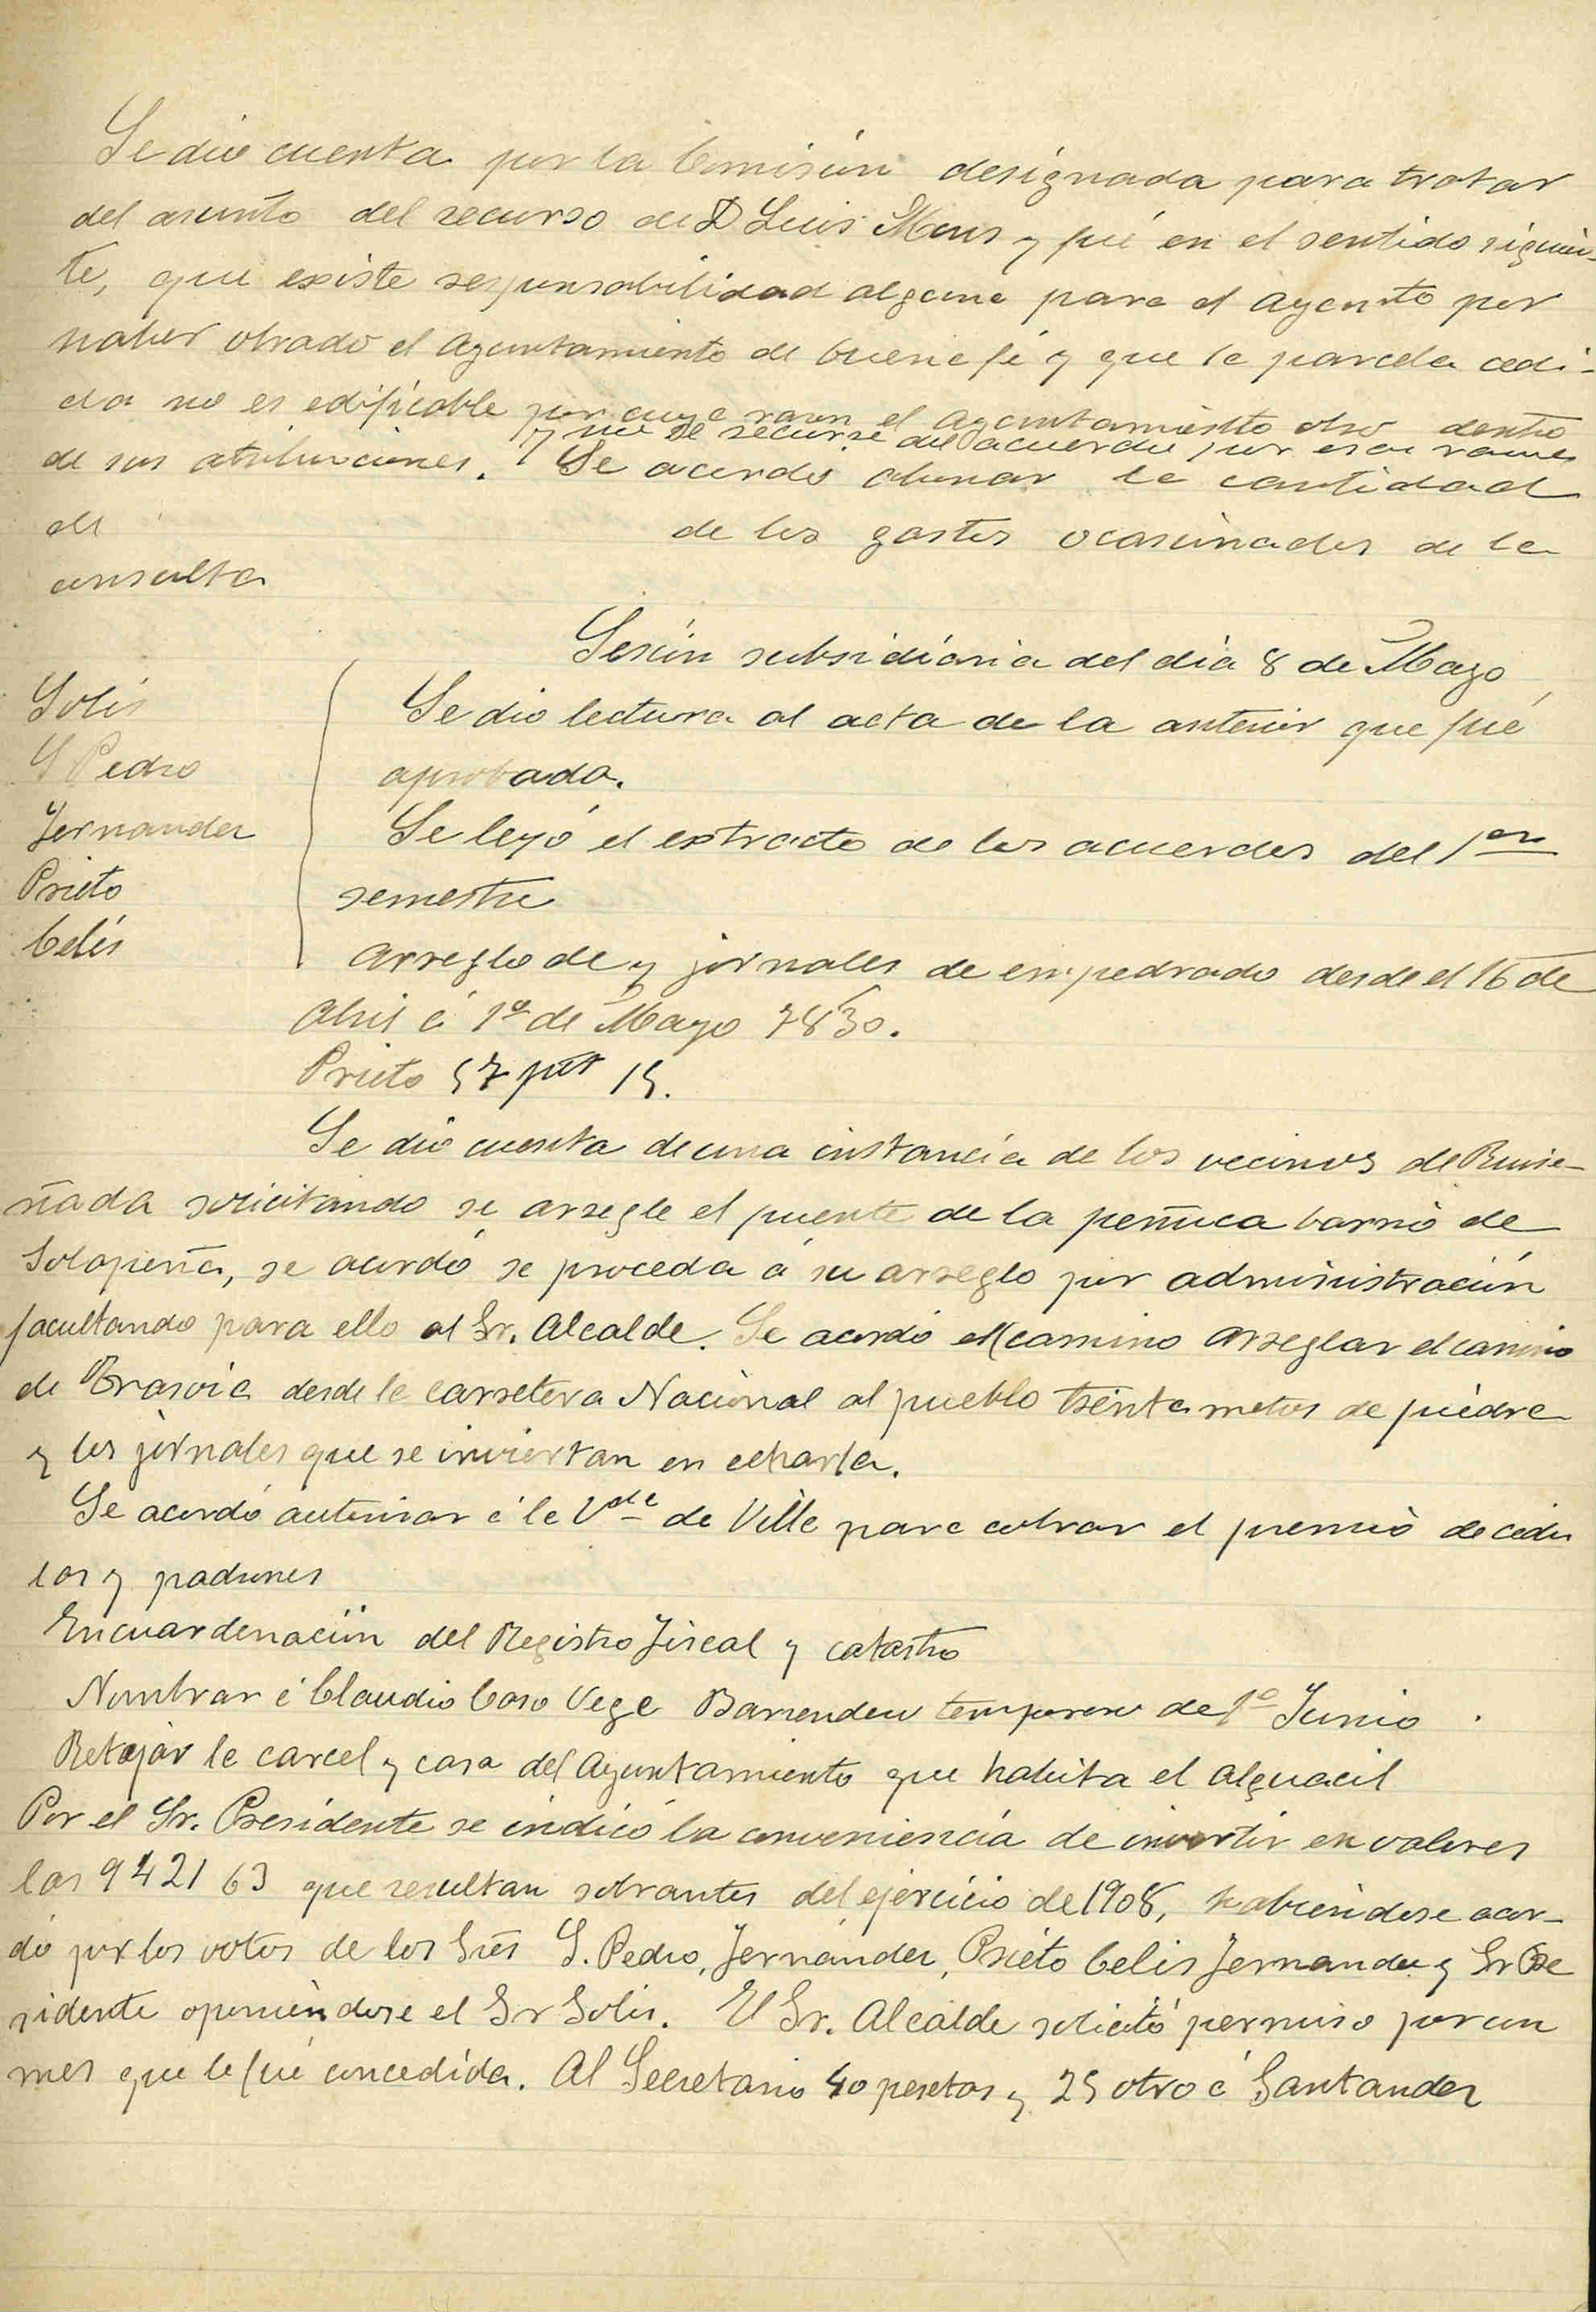 Se dio cuenta por la Comisión designada para tratar
del asunto del recurso de D Luis Mons y fué en el sentido siguien-
te, que existe responsabilidad alguna para el Ayunto por
haber obrado el Ayuntamiento de buena fé y que la parcela cedi-
da no es edificable por cuya razon el Ayuntamiento obro dentro
y que se recurse del acuerdo por esa razones
de sus atribuciones. Se acordo abonar la cantidad
de de los gastos ocasionados de la
consulta
Sesión subsidiaria del dia 8 de Mayo
Solis
S Pedro
Fernandez
Prieto
Celis
Se dio lectura al acta de la anterior que fué
aprobada.
Se leyó el extracto de los acuerdos del 1er
semestre
Arreglo de y jornales de empedrado desde el 16 de
Abril á 1º de Mayo 78'30.
Prieto 57 pts 15.
Se dio cuenta de una instancia de los vecinos de Ruise-
ñada solicitando se arregle el puente de la peñuca barrio de
Solapeña, se acordó se proceda á su arreglo por administración
facultando para ello al Sr. Alcalde. Se acordó el camino arreglar el camino
de Trasvia desde la carretera Nacional al pueblo treinta metros de piedra
y los jornales que se inviertan en echarla.
Se acordó autorizar á la Vda de Ville para cobrar el premio de cedu
las y padrones
Encuardenación del Registro Fiscal y catastro
Nombrar á Claudio Caso Vega Barrendero temporero de 1º Junio.
Retejar la carcel y casa del Ayuntamiento que habita el alguacil
Por el Sr. Presidente se indicó la conveniencia de invertir en valores
las 9421 63 que resultan sobrantes del ejercicio de 1908, habiendose acor-
do por los votos de los Sres S. Pedro, Fernández, Prieto Celis Fernandez y Sr Pre
sidente oponiendose el Sr Solis. El Sr. Alcalde solicitó permiso por un
mes que le fué concedida. Al Secretario 40 pesetas y 25 otro á Santander